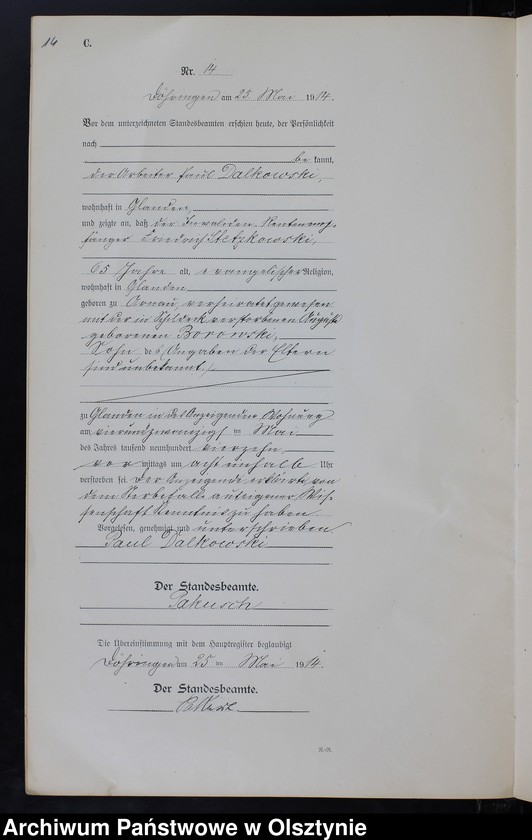 14
C.
Nr. 14
Döhringen am 25 Mai 1914.
Vor dem unterzeichneten Standesbeamten erschien heute, der Persönlichkeit
nach
be kannt,
der Arbeiter Paul Dalkowski,
wohnhaft in Glanden
und zeigte an, daß der Invaliden-Rentenemp-
fänger Stetzkowski,
65 Jahre alt, evangelischer Religion,
wohnhaft in Glanden
geboren zu Arnau, verheiratet gewesen
mit der in Schildeck verstorbenen Auguste
geborenen Borowski,
Sohn des, Angaben der Eltern
sind unbekannt.
zu Glanden in des Anzeigenden Wohnung
am vierundzwanzigsten Mai
des Jahres tausend neunhundert vierzehn
vor mittags um acht einhalb Uhr
verstorben sei. Der Anzeigende erklärte von
dem Sterbefalle aus eigener Wis-
senschaft Kenntnis zu haben.
Vorgelesen, genehmigt und unterschrieben
Paul Dalkowski
Der Standesbeamte.
Pakusch
Die Übereinstimmung mit dem Hauptregister beglaubigt
Döhringen am 25 ten Mai 1914.
Der Standesbeamte.
R.-R.
Archiwum Państwowe w Olsztynie